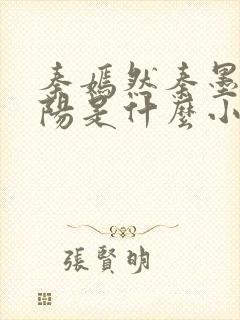 秦嫣然秦墨
陽是什麼小
張賢明